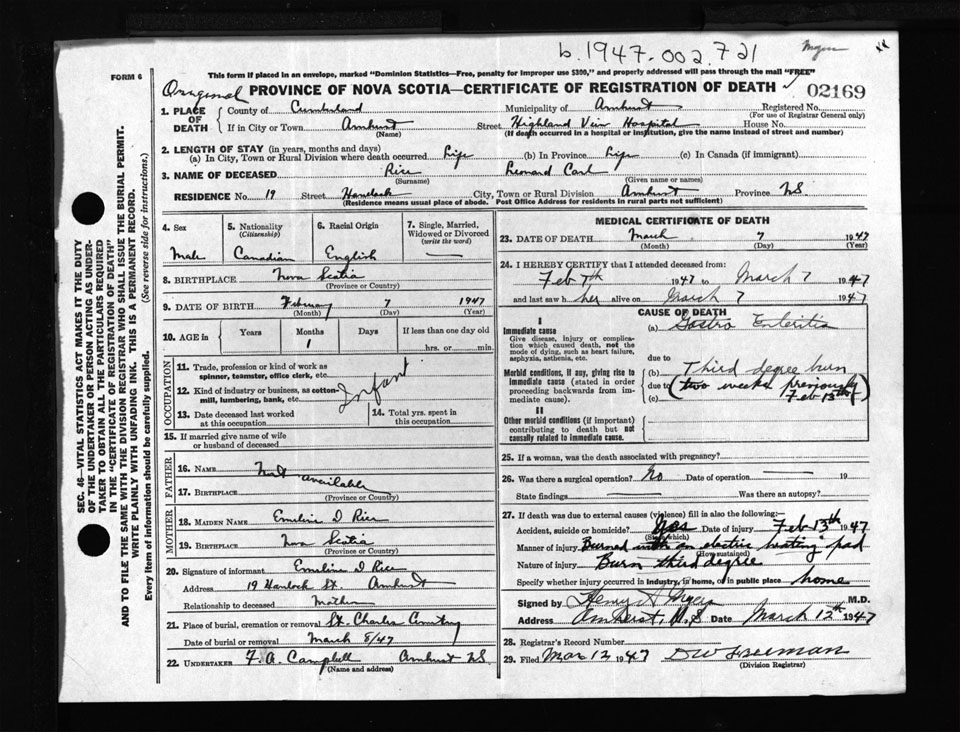 b. 1947-002721
FORM 6
This form if placed in an envelope, marked "Dominion Statistics—Free, penalty for improper use $300," and properly addressed will pass through the mail "FREE"
Original PROVINCE OF NOVA SCOTIA—CERTIFICATE OF REGISTRATION OF DEATH 02169
1. PLACE OF DEATH County of Cumberland Municipality of Amherst Registered No.
(For use of Registrar General only)
If in City or Town Amherst Street Highland View Hospital House No.
(Name) (If death occurred in a hospital or institution, give the name instead of street and number)
2. LENGTH OF STAY (in years, months and days)
(a) In City, Town or Rural Division where death occurred Life (b) In Province Life (c) In Canada (if immigrant)
3. NAME OF DECEASED Rice Leonard Carl
(Surname) (Given name or names)
RESIDENCE No. 19 Street Havelock City, Town or Rural Division Amherst Province NS
(Residence means usual place of abode. Post Office Address for residents in rural parts not sufficient)
4. Sex 5. Nationality (Citizenship) 6. Racial Origin 7. Single, Married, Widowed or Divorced (write the word)
Male Canadian English —
8. BIRTHPLACE Nova Scotia
(Province or Country)
9. DATE OF BIRTH February 7 1947
(Month) (Day) (Year)
10. AGE in Years Months Days If less than one day old
1 hrs. or min.
OCCUPATION
11. Trade, profession or kind of work as spinner, teamster, office clerk, etc.
12. Kind of industry or business, as cotton-mill, lumbering, bank, etc.
Infant
13. Date deceased last worked at this occupation
14. Total yrs. spent in this occupation
15. If married give name of wife or husband of deceased
FATHER
16. NAME Not available
17. BIRTHPLACE
(Province or Country)
MOTHER
18. MAIDEN NAME Emeline D Rice
19. BIRTHPLACE Nova Scotia
(Province or Country)
20. Signature of informant Emeline D Rice
Address 19 Havelock St. Amherst
Relationship to deceased Mother
21. Place of burial, cremation or removal St. Charles Cemetery
Date of burial or removal March 8/47
22. UNDERTAKER F. A. Campbell Amherst NS
(Name and address)
MEDICAL CERTIFICATE OF DEATH
23. DATE OF DEATH March 7 1947
(Month) (Day) (Year)
24. I HEREBY CERTIFY that I attended deceased from:
Feb 7th 1947 to March 7 1947
and last saw h her alive on March 7 1947
CAUSE OF DEATH
I
Immediate cause (a) Gastro Enteritis
Give disease, injury or complication which caused death, not the mode of dying, such as heart failure, asphyxia, asthenia, etc.
due to
Morbid conditions, if any, giving rise to immediate cause (stated in order proceeding backwards from immediate cause).
(b) Third degree burn
due to (two weeks previously
(c) Feb 13th)
II
Other morbid conditions (if important) contributing to death but not causally related to immediate cause.
25. If a woman, was the death associated with pregnancy?
26. Was there a surgical operation? No Date of operation — 19
State findings — Was there an autopsy?
27. If death was due to external causes (violence) fill in also the following:—
Accident, suicide or homicide? Yes Date of injury Feb 13th 1947
(State which)
Manner of injury Burned with an electric heating pad
(How sustained)
Nature of injury Burn third degree
Specify whether injury occurred in industry, in home, or in public place home
Signed by Henry A Myers M.D.
Address Amherst, N.S Date March 12th 1947
28. Registrar's Record Number
29. Filed Mar 12 1947 D W Freeman
(Division Registrar)
SEC. 46—VITAL STATISTICS ACT MAKES IT THE DUTY OF THE UNDERTAKER OR PERSON ACTING AS UNDERTAKER TO OBTAIN ALL THE PARTICULARS REQUIRED IN THE "CERTIFICATE OF REGISTRATION OF DEATH" AND TO FILE THE SAME WITH THE DIVISION REGISTRAR WHO SHALL ISSUE THE BURIAL PERMIT.
WRITE PLAINLY WITH UNFADING INK. THIS IS A PERMANENT RECORD.
Every item of information should be carefully supplied. (See reverse side for instructions.)